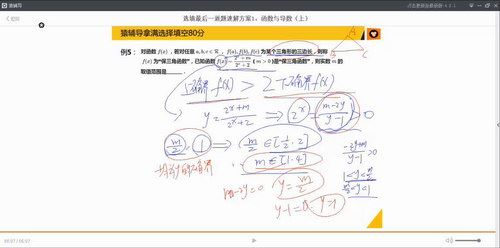 猿辅导
选填最后一题题速解方案1：函数与导数（上）
猿辅导拿满选择填空80分
例5：对函数f(x)，若对任意a,b,c∈R，f(a),f(b),f(c)为某个三角形的三边长，则称
f(x)为"保三角函数"，已知函数f(x)=(2^x+m)/(2^x+2)（m>0）是"保三角函数"，则实数m的
取值范围是
A
B C
f(x) > 2 下确界 f(x)
y = (2^x+m)/(2^x+2) ⟹ 2^x = (m-2y)/(y-1) > 0
m/2 , 1 ⟹ m/2 ∈ [1/2, 2]
m ∈ [1, 4]
m-2y=0 y = m/2
y-1=0 y=1
(-2y+m)/(y-1) > 0
1<y<m/2
m/2<y<1